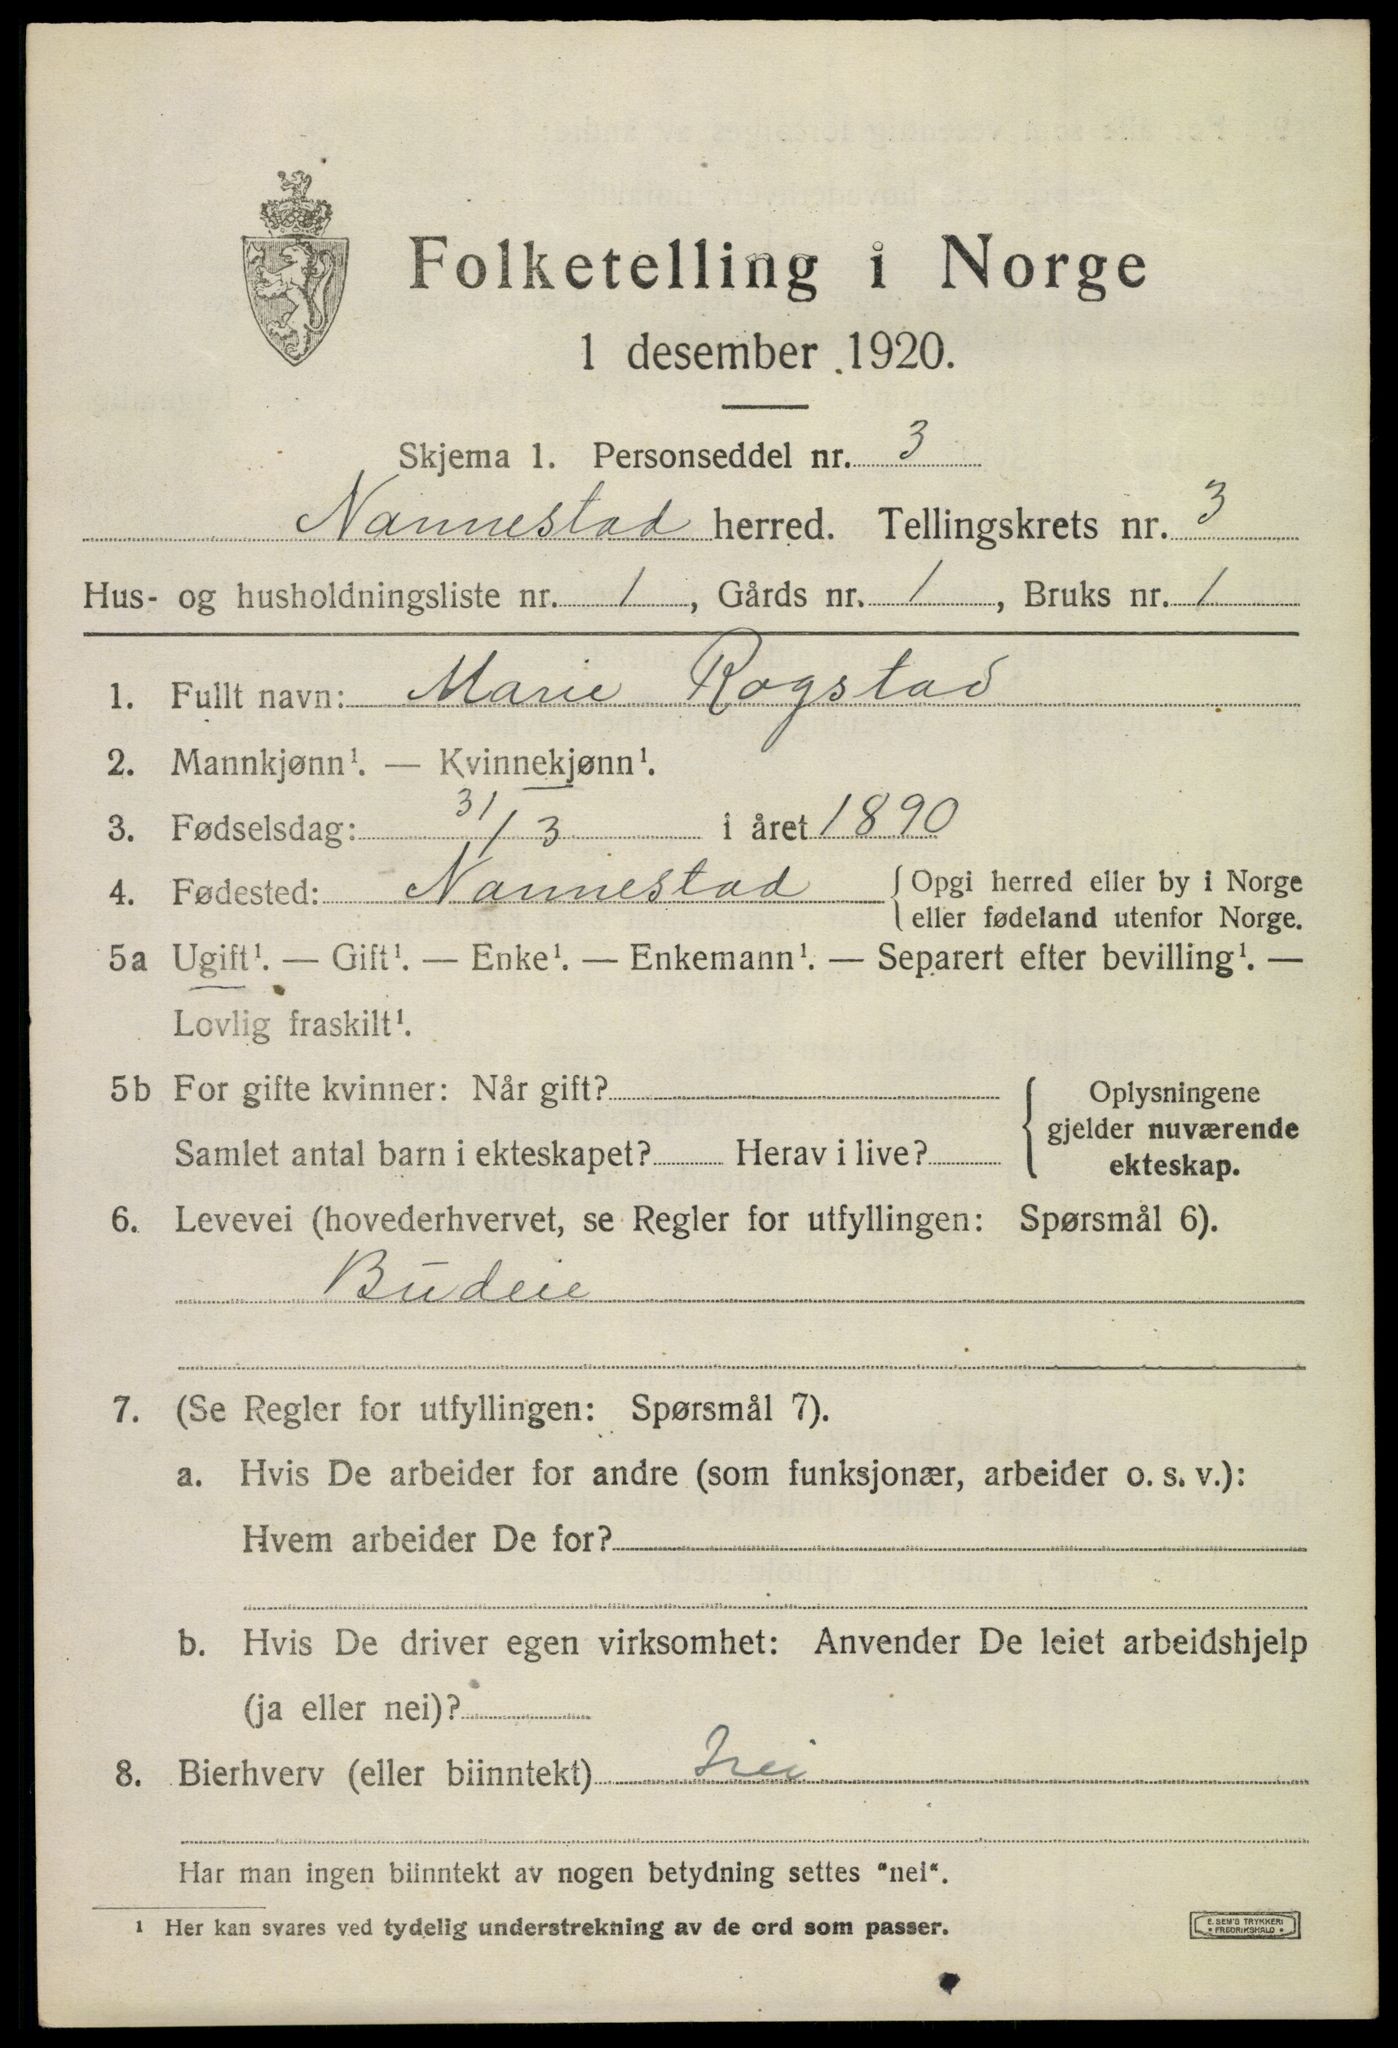 Folketelling i Norge
1 desember 1920.
Skjema 1. Personseddel nr. 3
Nannestad herred. Tellingskrets nr. 3
Hus- og husholdningsliste nr. 1, Gårds nr. 1, Bruks nr. 1
1. Fullt navn: Marie Rogstad
2. Mannkjønn¹. — Kvinnekjønn¹.
3. Fødselsdag: 31/3 i året 1890
4. Fødested: Nannestad { Opgi herred eller by i Norge
eller fødeland utenfor Norge.
5a Ugift¹. — Gift¹. — Enke¹. — Enkemann¹. — Separert efter bevilling¹. —
Lovlig fraskilt¹.
5b For gifte kvinner: Når gift?
Samlet antal barn i ekteskapet? Herav i live?
{ Oplysningene
gjelder nuværende
ekteskap.
6. Levevei (hovederhvervet, se Regler for utfyllingen: Spørsmål 6).
Budeie
7. (Se Regler for utfyllingen: Spørsmål 7).
a. Hvis De arbeider for andre (som funksjonær, arbeider o. s. v.):
Hvem arbeider De for?
b. Hvis De driver egen virksomhet: Anvender De leiet arbeidshjelp
(ja eller nei)?
8. Bierhverv (eller biinntekt) Nei
Har man ingen biinntekt av nogen betydning settes "nei".
¹ Her kan svares ved tydelig understrekning av de ord som passer.
E. SEM'S TRYKKERI
* FREDRIKSHALD *